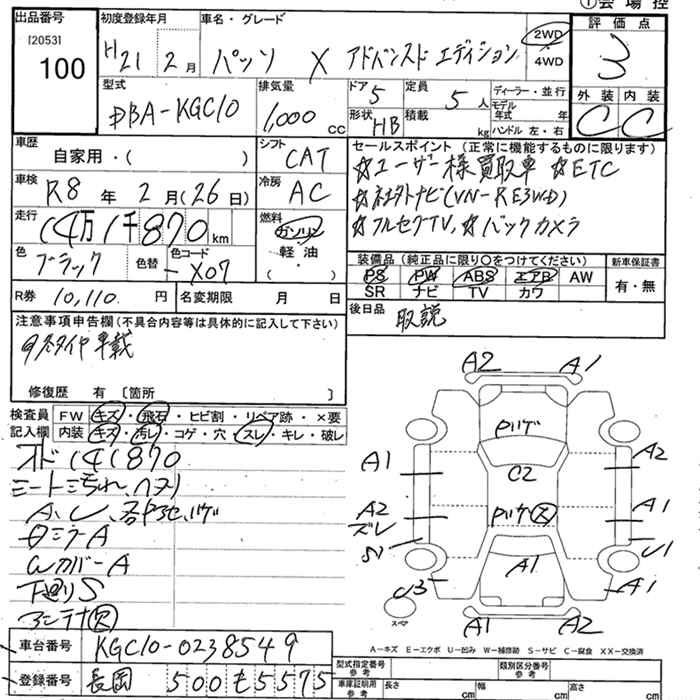 ①会場控
出品番号
[2053]
100
初度登録年月
H21年2月
車名・グレード
パッソ X アドバンスド エディション
2WD
4WD
評価点
3
外装 内装
C C
型式
DBA-KGC10
排気量
1,000 cc
ドア 5
定員 5 人
形状 HB
積載 kg
ディーラー・並行
モデル年式 年
ハンドル 左・右
車歴
自家用・( )
シフト CAT
冷房 AC
車検
R8年2月(26日)
走行
14万1千870 km
燃料
ガソリン
軽油
( ・ )
色 ブラック
色替
色コード X07
R券 10,110 円
名変期限 月 日
セールスポイント (正常に機能するものに限ります)
☆ユーザー様買取車 ☆ETC
☆ネオトナビ(VN-RE3WD)
☆フルセグTV、☆バックカメラ
装備品 (純正品に限り○をつけてください)
PS PW ABS エアB AW
SR ナビ TV カワ
新車保証書
有・無
後日品 取説
注意事項申告欄(不具合内容等は具体的に記入して下さい)
スタイヤ車載
修復歴 有 〔箇所 〕
検査員記入欄
FW キズ・飛石・ヒビ割・リペア跡・×要
内装 キズ・汚レ・コゲ・穴・スレ・キレ・破レ
オド141870
シートシミ汚れ、ハヌリ
A、U、各ヤセ、ハゲ
ミラーA
WカバーA
下廻りS
アンテナ欠
A2 A1
ハゲ
A1 C2 A2
A2 ハゲ 欠 A1
ズレ
S1 A1 U1
U3 A1
スペア
A1 A2
A-キズ E-エクボ U-凹み W-補修跡 S-サビ C-腐食 XX-交換済
車台番号 KGC10-0238549
登録番号 長岡 500 も 5575
型式指定番号 参考
類別区分番号 参考
車庫証明用 参考 長さ cm 幅 cm 高さ cm